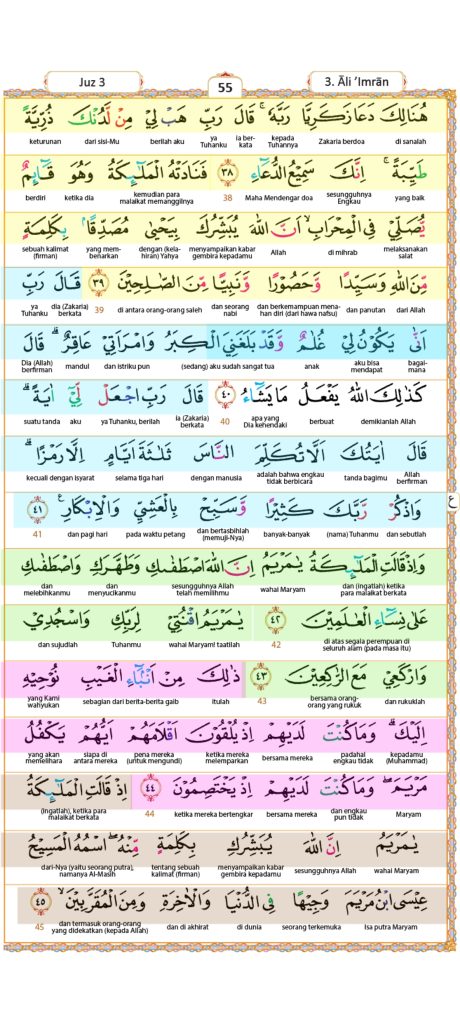 Juz 3
55
3. Āli ‘Imrān
هُنَالِكَ دَعَا زَكَرِيَّا رَبَّهٗ ۚ قَالَ رَبِّ هَبْ لِيْ مِنْ لَّدُنْكَ ذُرِّيَّةً
di sanalah Zakaria berdoa kepada Tuhannya ia berkata ya Tuhanku berilah aku dari sisi-Mu keturunan
طَيِّبَةً ۚ اِنَّكَ سَمِيْعُ الدُّعَاۤءِ ٣٨ فَنَادَتْهُ الْمَلٰۤىِٕكَةُ وَهُوَ قَاۤىِٕمٌ
yang baik sesungguhnya Engkau Maha Mendengar doa 38 kemudian para malaikat memanggilnya ketika dia berdiri
يُّصَلِّيْ فِى الْمِحْرَابِۙ اَنَّ اللّٰهَ يُبَشِّرُكَ بِيَحْيٰى مُصَدِّقًاۢ بِكَلِمَةٍ
melaksanakan salat di mihrab Allah menyampaikan kabar gembira kepadamu dengan (kelahiran) Yahya yang membenarkan sebuah kalimat (firman)
مِّنَ اللّٰهِ وَسَيِّدًا وَّحَصُوْرًا وَّنَبِيًّا مِّنَ الصّٰلِحِيْنَ ٣٩ قَالَ رَبِّ
dari Allah dan panutan dan berkemampuan menahan diri (dari hawa nafsu) dan seorang nabi di antara orang-orang saleh 39 dia (Zakaria) berkata ya Tuhanku
اَنّٰى يَكُوْنُ لِيْ غُلٰمٌ وَّقَدْ بَلَغَنِيَ الْكِبَرُ وَامْرَاَتِيْ عَاقِرٌ ۗ قَالَ
bagaimana aku bisa mendapat anak (sedang) aku sudah sangat tua dan istriku pun mandul Dia (Allah) berfirman
كَذٰلِكَ اللّٰهُ يَفْعَلُ مَا يَشَاۤءُ ٤٠ قَالَ رَبِّ اجْعَلْ لِّيْٓ اٰيَةً ۗ
demikianlah Allah berbuat apa yang Dia kehendaki 40 ia (Zakaria) berkata ya Tuhanku, berilah aku suatu tanda
قَالَ اٰيَتُكَ اَلَّا تُكَلِّمَ النَّاسَ ثَلٰثَةَ اَيَّامٍ اِلَّا رَمْزًا ۗ
Allah berfirman tanda bagimu adalah bahwa engkau tidak berbicara dengan manusia selama tiga hari kecuali dengan isyarat
وَاذْكُرْ رَّبَّكَ كَثِيْرًا وَّسَبِّحْ بِالْعَشِيِّ وَالْاِبْكَارِ ࣖ ٤١
ع
dan sebutlah (nama) Tuhanmu banyak-banyak dan bertasbihlah (memuji-Nya) pada waktu petang dan pagi hari 41
وَاِذْ قَالَتِ الْمَلٰۤىِٕكَةُ يٰمَرْيَمُ اِنَّ اللّٰهَ اصْطَفٰىكِ وَطَهَّرَكِ وَاصْطَفٰىكِ
dan (ingatlah) ketika para malaikat berkata wahai Maryam sesungguhnya Allah telah memilihmu dan menyucikanmu dan melebihkanmu
عَلٰى نِسَاۤءِ الْعٰلَمِيْنَ ٤٢ يٰمَرْيَمُ اقْنُتِيْ لِرَبِّكِ وَاسْجُدِيْ
di atas segala perempuan di seluruh alam (pada masa itu) 42 wahai Maryam! taatilah Tuhanmu dan sujudlah
وَارْكَعِيْ مَعَ الرّٰكِعِيْنَ ٤٣ ذٰلِكَ مِنْ اَنْۢبَاۤءِ الْغَيْبِ نُوْحِيْهِ
dan rukuklah bersama orang-orang yang rukuk 43 itulah sebagian dari berita-berita gaib yang Kami wahyukan
اِلَيْكَ ۗ وَمَا كُنْتَ لَدَيْهِمْ اِذْ يُلْقُوْنَ اَقْلَامَهُمْ اَيُّهُمْ يَكْفُلُ
kepadamu (Muhammad) padahal engkau tidak bersama mereka ketika mereka melemparkan pena mereka (untuk mengundi) siapa di antara mereka yang akan memelihara
مَرْيَمَۖ وَمَا كُنْتَ لَدَيْهِمْ اِذْ يَخْتَصِمُوْنَ ٤٤ اِذْ قَالَتِ الْمَلٰۤىِٕكَةُ
Maryam dan engkau pun tidak bersama mereka ketika mereka bertengkar 44 (ingatlah), ketika para malaikat berkata
يٰمَرْيَمُ اِنَّ اللّٰهَ يُبَشِّرُكِ بِكَلِمَةٍ مِّنْهُۖ اسْمُهُ الْمَسِيْحُ
wahai Maryam sesungguhnya Allah menyampaikan kabar gembira kepadamu tentang sebuah kalimat (firman) dari-Nya (yaitu seorang putra), namanya Al-Masih
عِيْسَى ابْنُ مَرْيَمَ وَجِيْهًا فِى الدُّنْيَا وَالْاٰخِرَةِ وَمِنَ الْمُقَرَّبِيْنَۙ ٤٥
Isa putra Maryam seorang terkemuka di dunia dan di akhirat dan termasuk orang-orang yang didekatkan (kepada Allah) 45